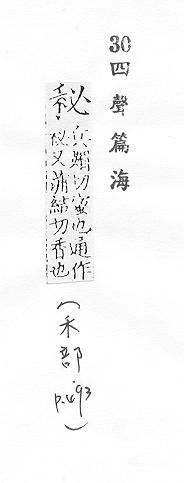 30 四聲篇海
秘 兵切蜜也通作
又蒲結切香也
(禾部 p.493)